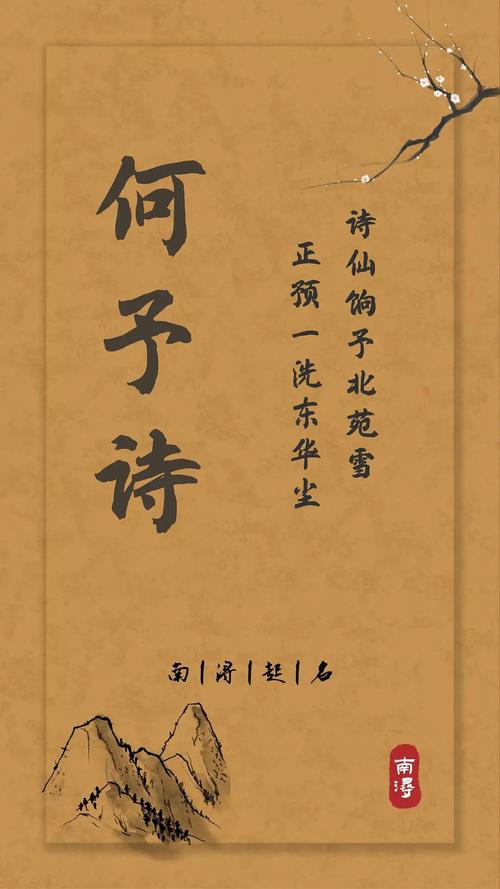 何予诗
诗仙饷予北苑雪
正预一洗东华尘
南|浔|起|名
南浔